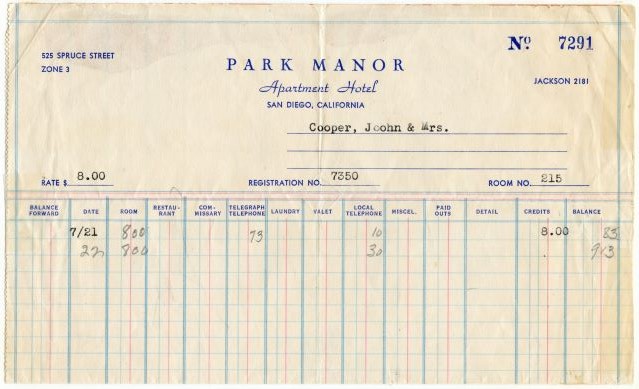 Nº 7291
525 SPRUCE STREET
ZONE 3
PARK MANOR
Apartment Hotel
SAN DIEGO, CALIFORNIA
JACKSON 2181
Cooper, Joohn & Mrs.
RATE $ 8.00 REGISTRATION NO. 7350 ROOM NO. 215
BALANCE FORWARD DATE ROOM RESTAU-RANT COM-MISSARY TELEGRAPH TELEPHONE LAUNDRY VALET LOCAL TELEPHONE MISCEL. PAID OUTS DETAIL CREDITS BALANCE
7/21 800 73 10 8.00 83
22 800 30 913